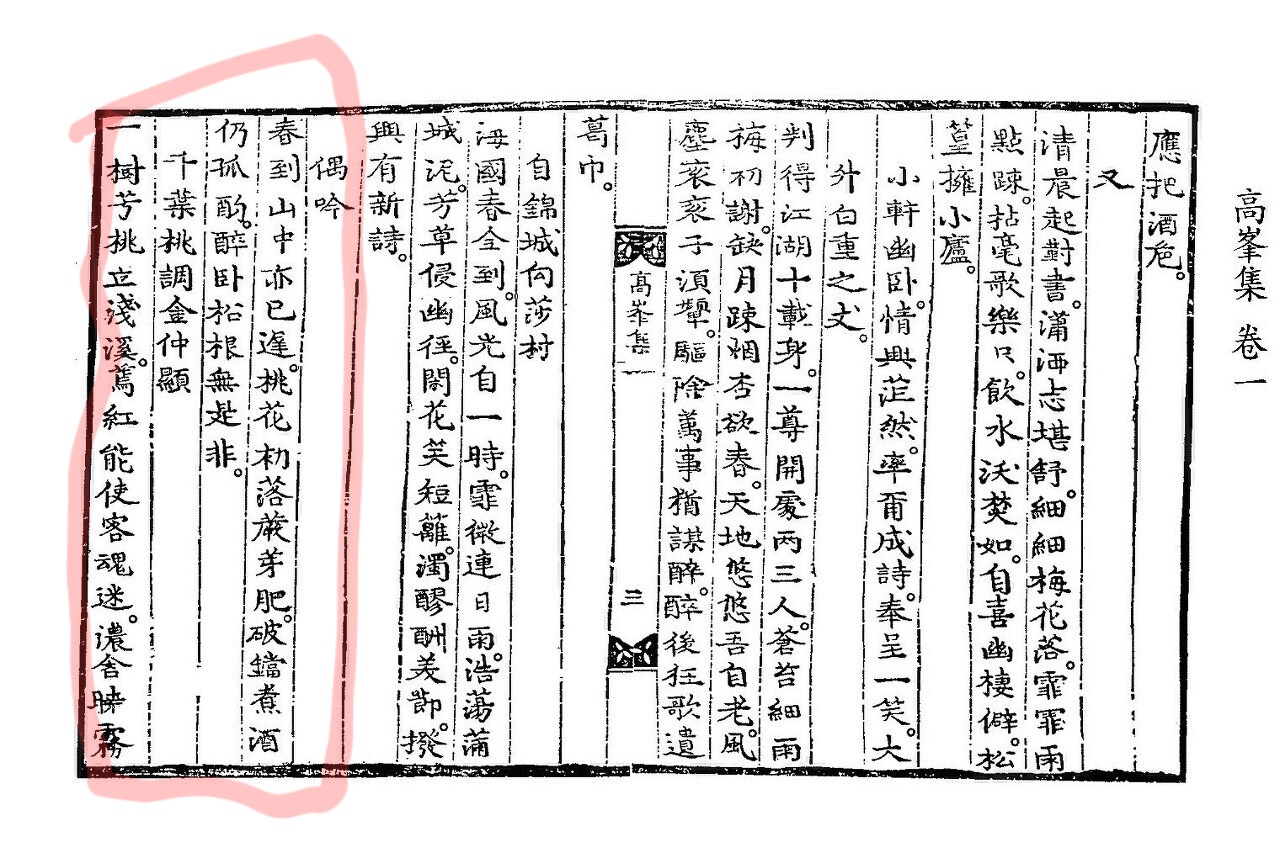 高峯集 卷一
應把酒卮。
又
清晨起對書。瀟洒志堪舒。細細梅花落。霏霏雨
點踈。拈毫歌樂只。飮水沃焚如。自喜幽棲僻。松
篁擁小廬。
小軒幽卧。情興茫然。率爾成詩。奉呈一笑。大
升白重之丈。
判得江湖十載身。一尊開處兩三人。蒼苔細雨
梅初謝。缺月踈烟杏欲春。天地悠悠吾自老。風
塵衮衮子湏顰。驅除萬事猶謀醉。醉後狂歌遺
葛巾。
高峯集
三
自錦城向莎村
海國春全到。風光自一時。霏微連日雨。浩蕩蒲
城泥。芳草侵幽徑。閙花笑短籬。濁醪酬美節。撥
興有新詩。
偶吟
春到山中亦已遲。桃花初落蕨芽肥。破鐺煮酒
仍孤酌。醉卧松根無是非。
千葉桃調金仲顯
一樹芳桃立淺溪。蔫紅能使客魂迷。濃含暎霧